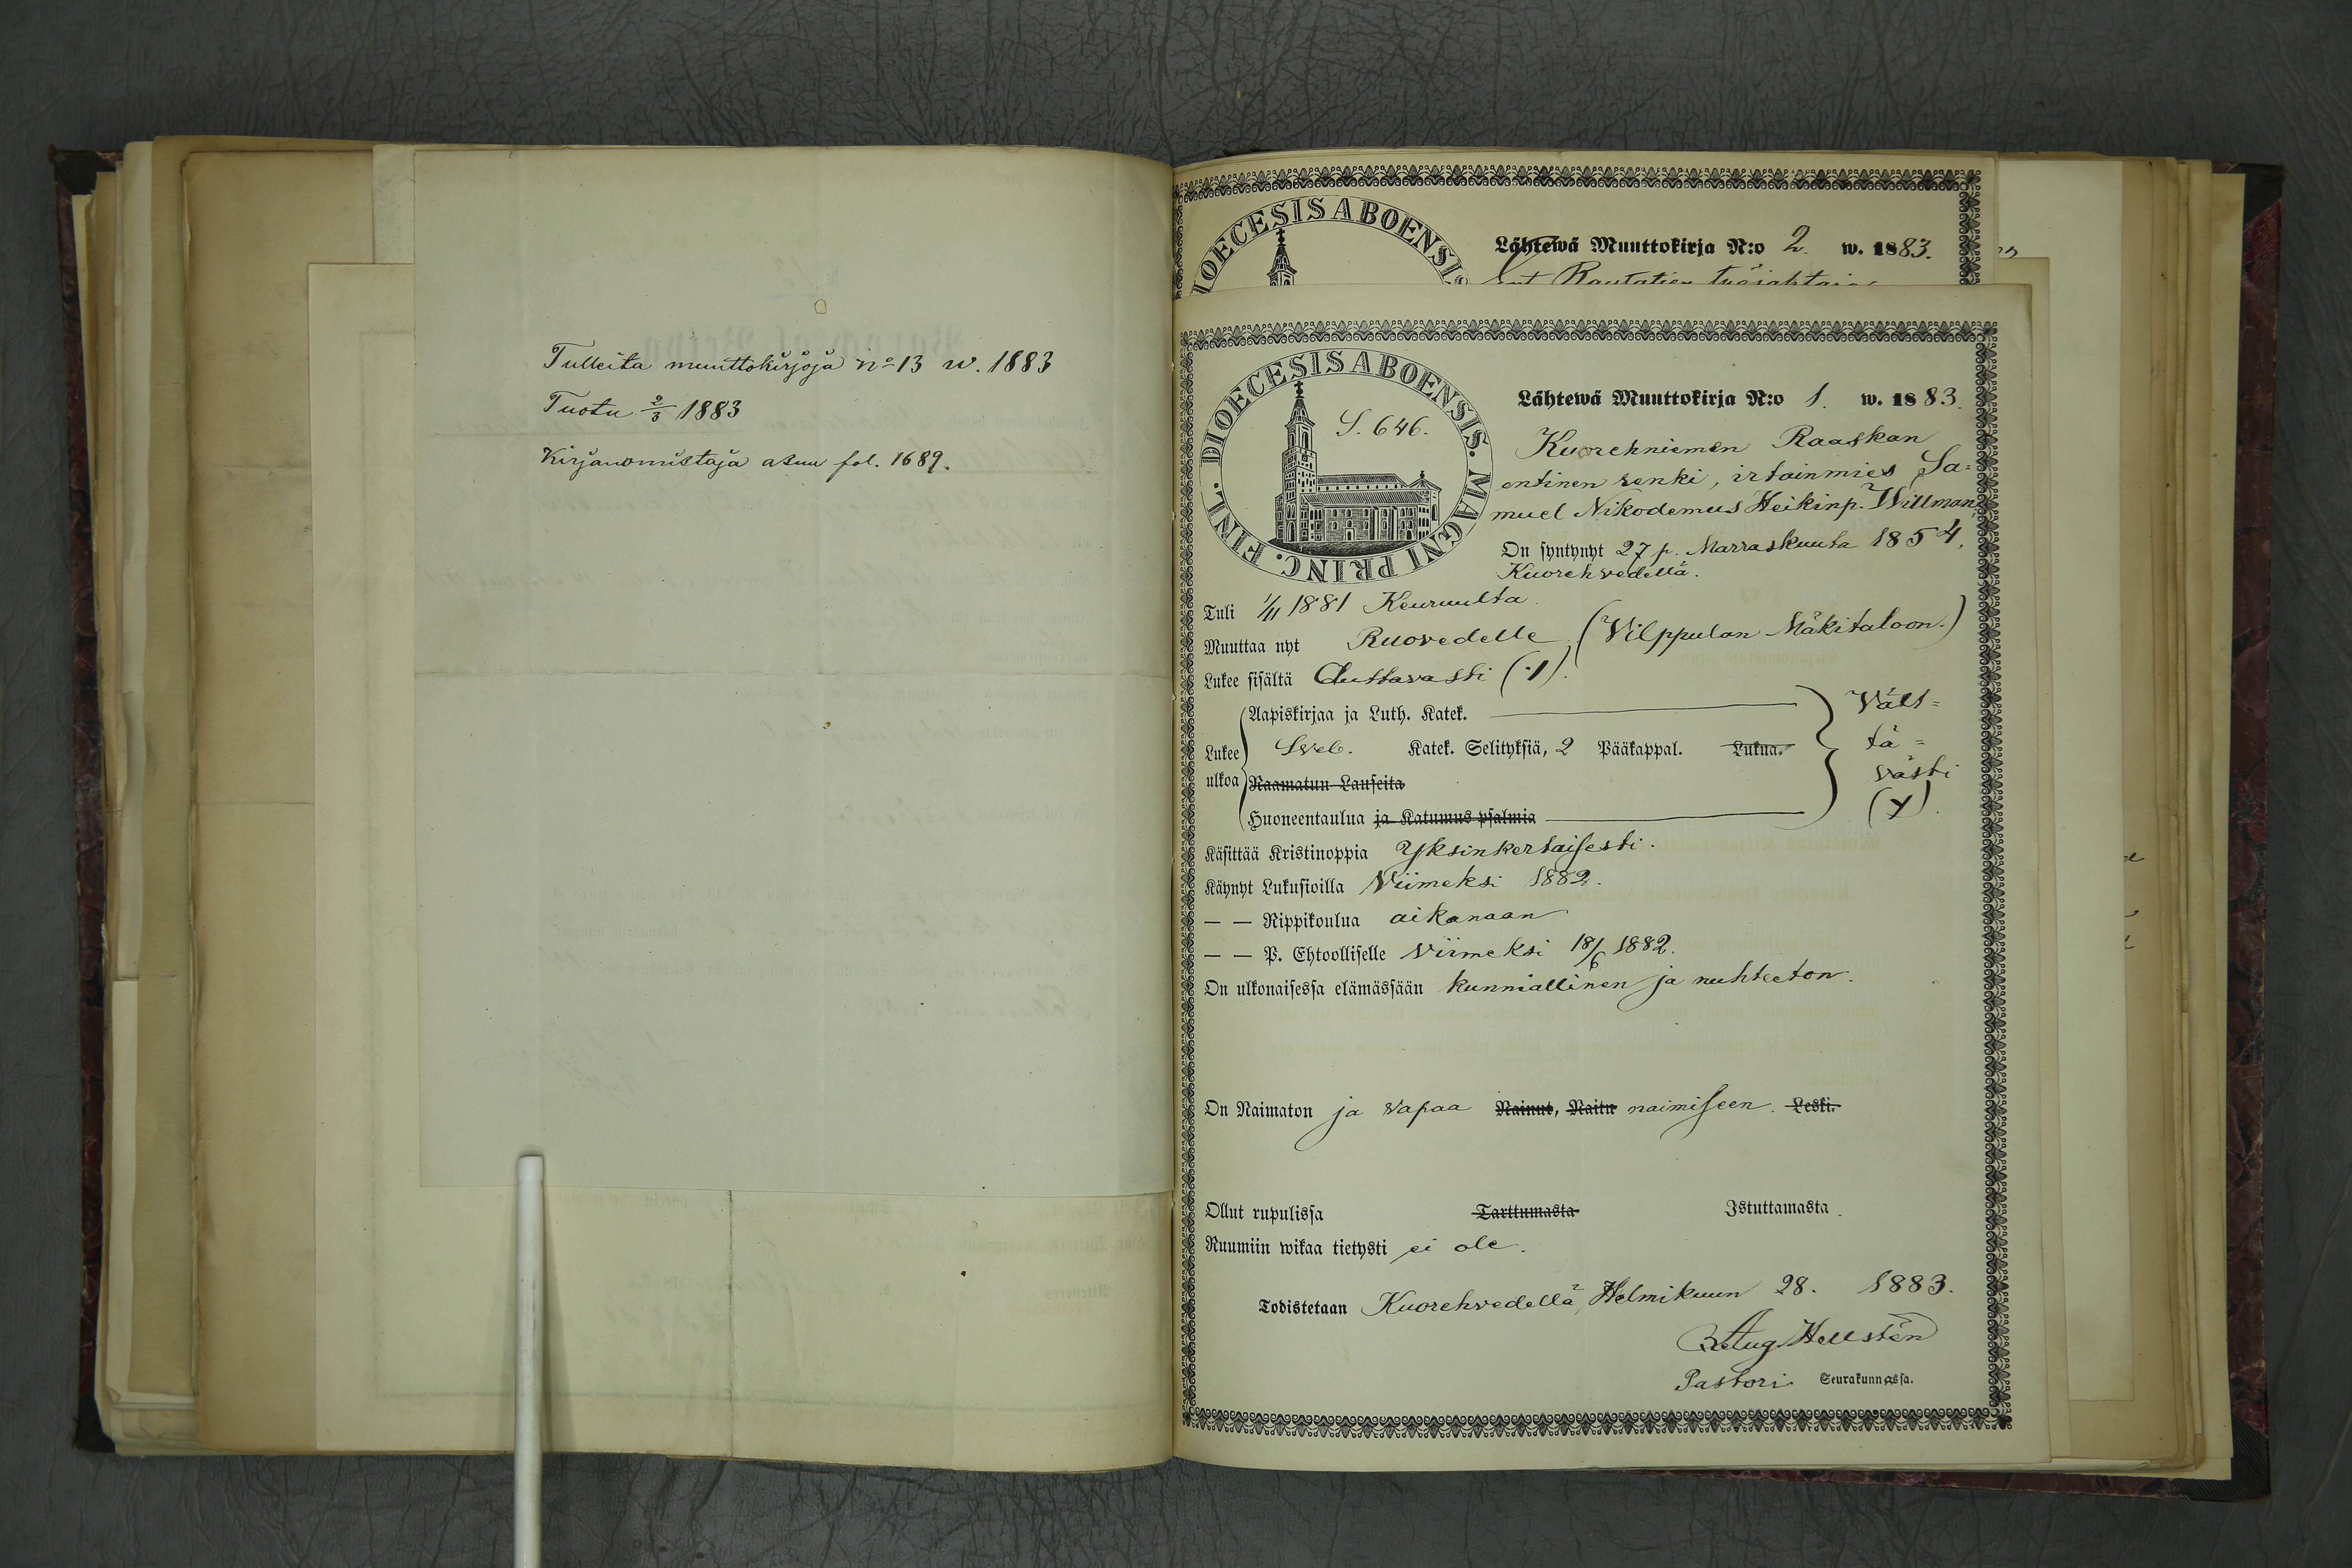 Tulleita muuttokirjoja no 13 w. 1883
Tuotu 2/3 1883
Kirjanomistaja asuu fol. 1689.
DIOECESIS ABOENSIS
Lähtewä Muuttokirja N:o 2. w. 1883.
DIOECESIS ABOENSIS. MAGNI PRINC. FINL.
S. 646.
Lähtewä Muuttokirja N:o 1. w. 1883.
Kuorehniemen Raaskan
entinen renki, irtainmies Sa=
muel Nikodemus Heikinp. Willman,
On syntynyt 27 p. Marraskuuta 1854,
Kuorehvedellä.
Tuli 1/11 1881 Keuruulta.
Muuttaa nyt Ruovedelle (Vilppulan Mäkitaloon.)
Lukee sisältä Auttavasti
Aapiskirjaa ja Luth. Katek.
Lukee ulkoa
Sveb. Katek. Selityksiä, 2 Pääkappal. Lukua.
Raamatun Lauseita
Huoneentaulua ja Katumus psalmia
Vält=
tä=
västi
Käsittää Kristinoppia Yksinkertaisesti.
Käynyt Lukusioilla Viimeksi 1882.
— — Rippikoulua aikanaan
— — P. Ehtoolliselle Viimeksi 18/6 1882.
On ulkonaisessa elämässään kunniallinen ja nuhteeton.
On Naimaton ja vapaa Nainut, Naitu naimiseen. Leski.
Ollut rupulissa Tarttumasta Istuttamasta.
Ruumiin wikaa tietysti ei ole.
Todistetaan Kuorehvedellä, Helmikuun 28. 1883.
Aug Hellstén
Pastori Seurakunnassa.